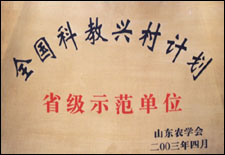 全国科教兴村计划
省级示范单位
山东农学会
二00三年四月